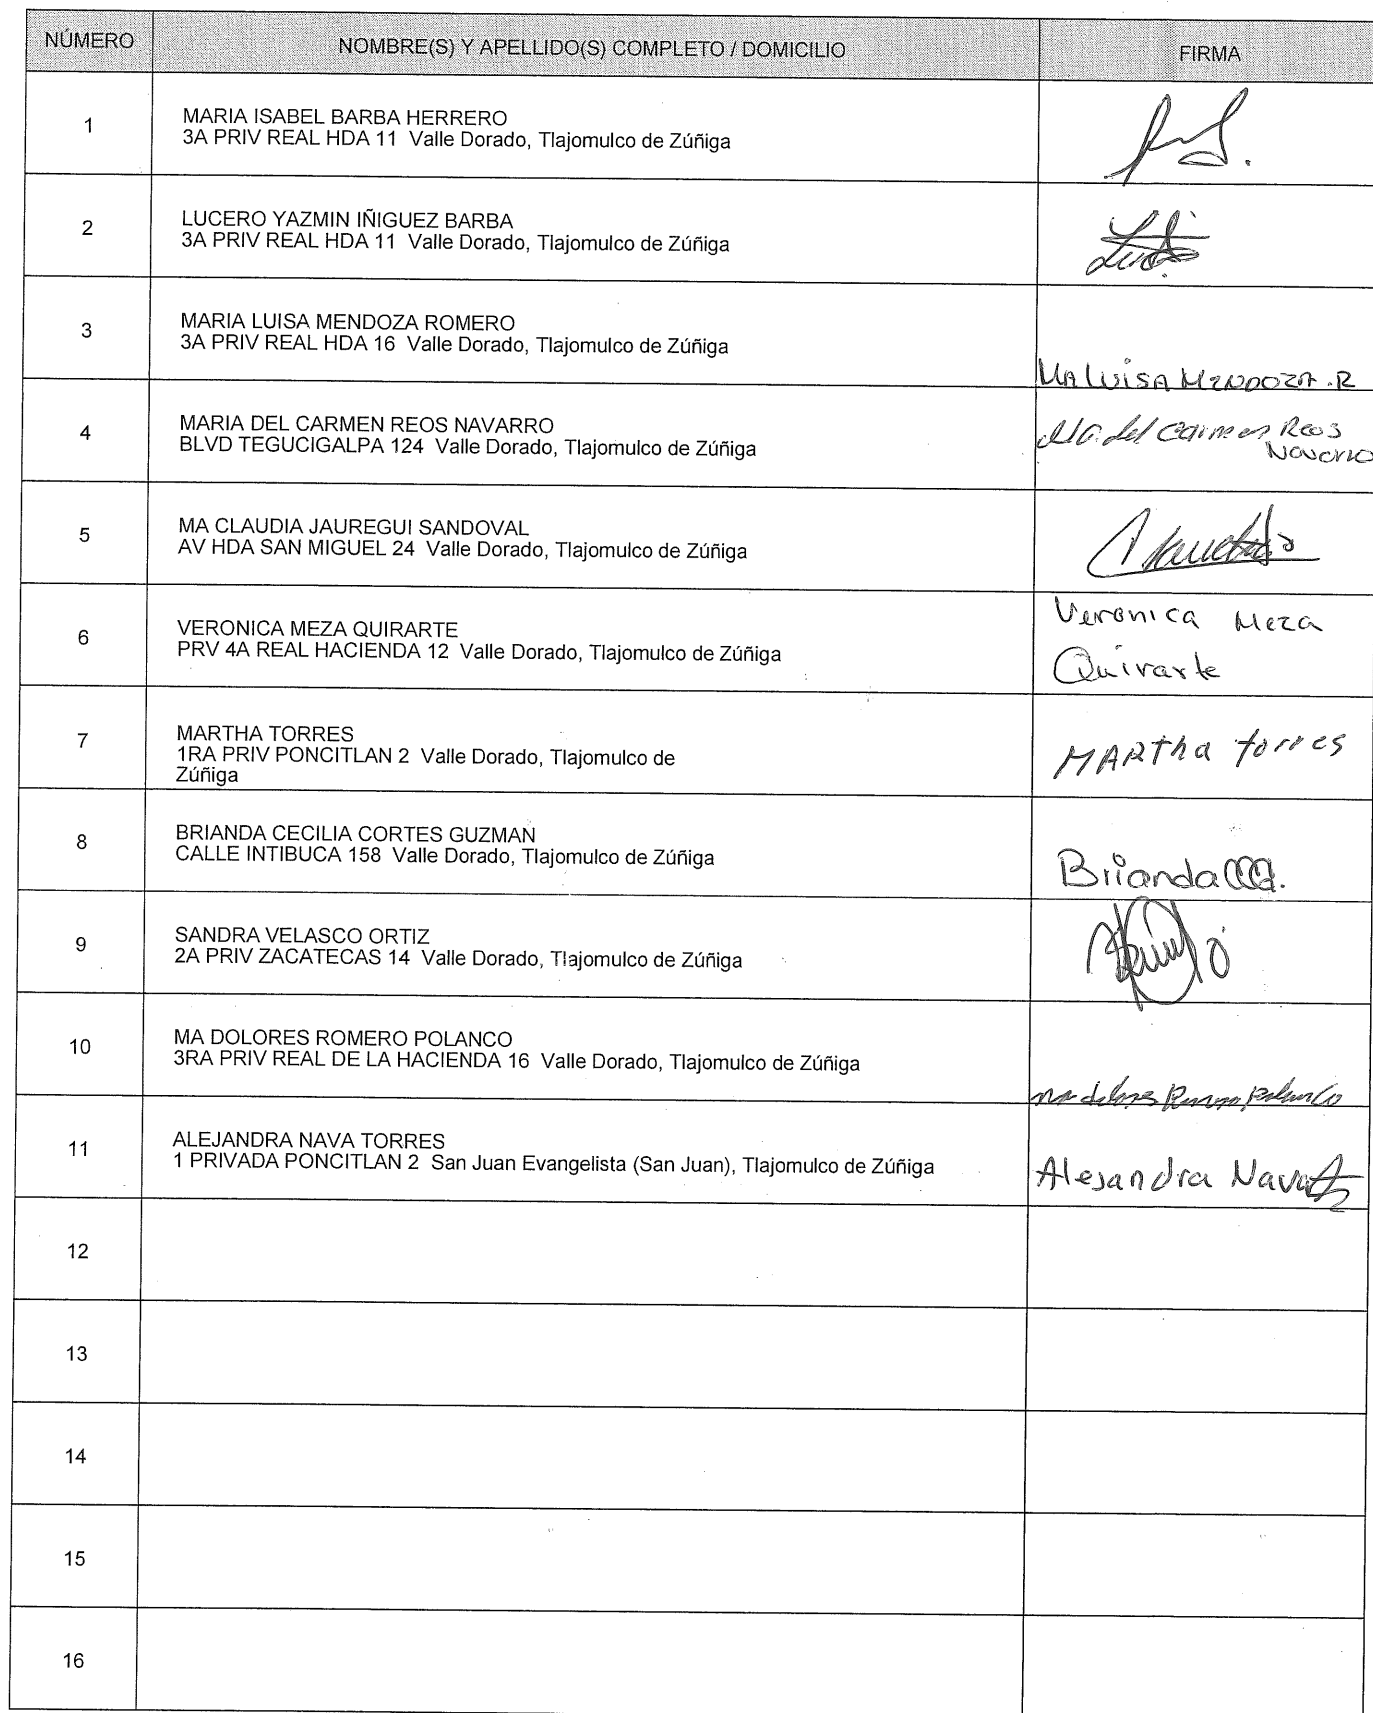 NÚMERO
NOMBRE(S) Y APELLIDO(S) COMPLETO / DOMICILIO
FIRMA
1
MARIA ISABEL BARBA HERRERO
3A PRIV REAL HDA 11 Valle Dorado, Tlajomulco de Zúñiga
2
LUCERO YAZMIN IÑIGUEZ BARBA
3A PRIV REAL HDA 11 Valle Dorado, Tlajomulco de Zúñiga
3
MARIA LUISA MENDOZA ROMERO
3A PRIV REAL HDA 16 Valle Dorado, Tlajomulco de Zúñiga
MA LUISA MENDOZA .R
4
MARIA DEL CARMEN REOS NAVARRO
BLVD TEGUCIGALPA 124 Valle Dorado, Tlajomulco de Zúñiga
Ma del Carmen Reos
Navarro
5
MA CLAUDIA JAUREGUI SANDOVAL
AV HDA SAN MIGUEL 24 Valle Dorado, Tlajomulco de Zúñiga
6
VERONICA MEZA QUIRARTE
PRV 4A REAL HACIENDA 12 Valle Dorado, Tlajomulco de Zúñiga
Veronica Meza
Quirarte
7
MARTHA TORRES
1RA PRIV PONCITLAN 2 Valle Dorado, Tlajomulco de
Zúñiga
MARTha torres
8
BRIANDA CECILIA CORTES GUZMAN
CALLE INTIBUCA 158 Valle Dorado, Tlajomulco de Zúñiga
Brianda CCG.
9
SANDRA VELASCO ORTIZ
2A PRIV ZACATECAS 14 Valle Dorado, Tlajomulco de Zúñiga
10
MA DOLORES ROMERO POLANCO
3RA PRIV REAL DE LA HACIENDA 16 Valle Dorado, Tlajomulco de Zúñiga
ma dolores Romero Polanco
11
ALEJANDRA NAVA TORRES
1 PRIVADA PONCITLAN 2 San Juan Evangelista (San Juan), Tlajomulco de Zúñiga
Alejandra Nava
12
13
14
15
16